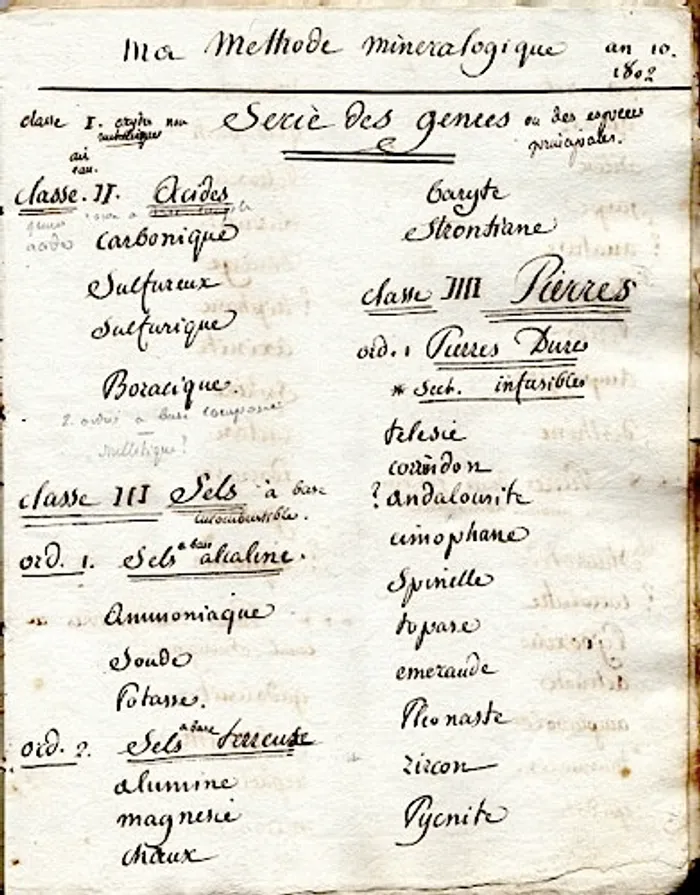 Ma Methode mineralogique an 10.
1802
Serie des genres ou des especes
principales.
classe I. oxydes non
metalliques
air
eau.
classe. II. Acides
genres
acides
carbonique
Sulfureux
Sulfurique
Boracique.
2. ordre a base composée
mellitique?
classe III Sels à base
incombustible.
ord. 1. Sels à base alkaline.
Ammoniaque
Soude
Potasse.
ord. 2. Sels à base terreuse
alumine
magnesie
chaux
baryte
Strontiane
classe IIII Pierres
ord. 1 Pierres Dures
* Sect. infusibles
telesie
corindon
? andalousite
cimophane
Spinelle
topase
emeraude
Pleonaste
zircon
Pycnite